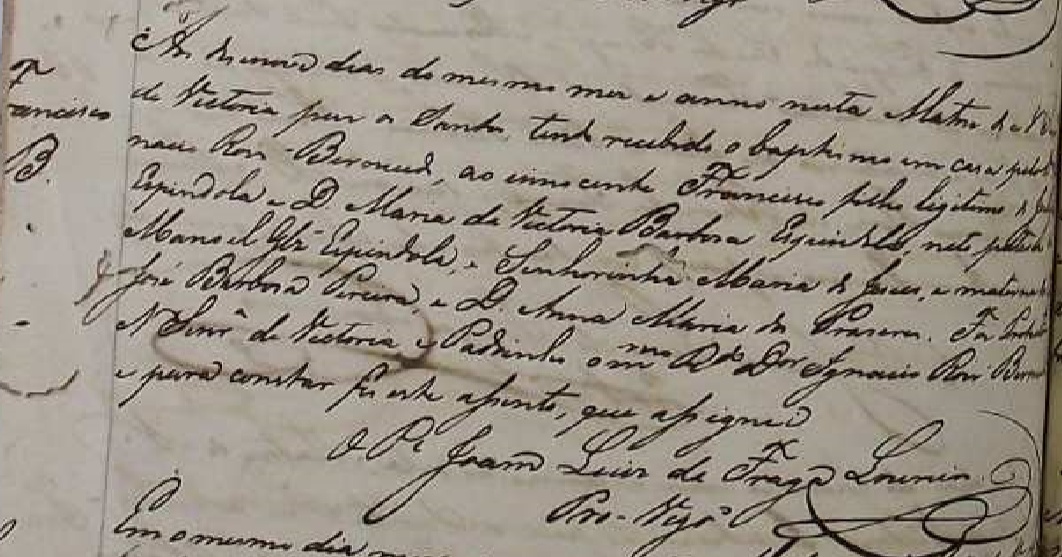 Francisco
B.
Aos dias do mesmo mez e anno nesta Matriz de N
da Victoria puz os Santos tendo recebido o baptismo em casa pelo
Roiz Bernard, ao innocente Francisco filho legitimo de
Espindola e D. Maria da Victoria Barboza Espindola, neto
Manoel Glz Espindola, e Senhorinha Maria de Jesus, e matern
José Barboza Pereira, e D. Anna Maria dos Prazeres. Foi
N Senrª da Victoria e Padrinho o mmo Rdo Dor Ignacio Roiz Ber
e para constar fiz este assento, que assignei
O Pe Joam Luiz de Fraga Loureiro
Pro-Vigrº
Em o mesmo dia